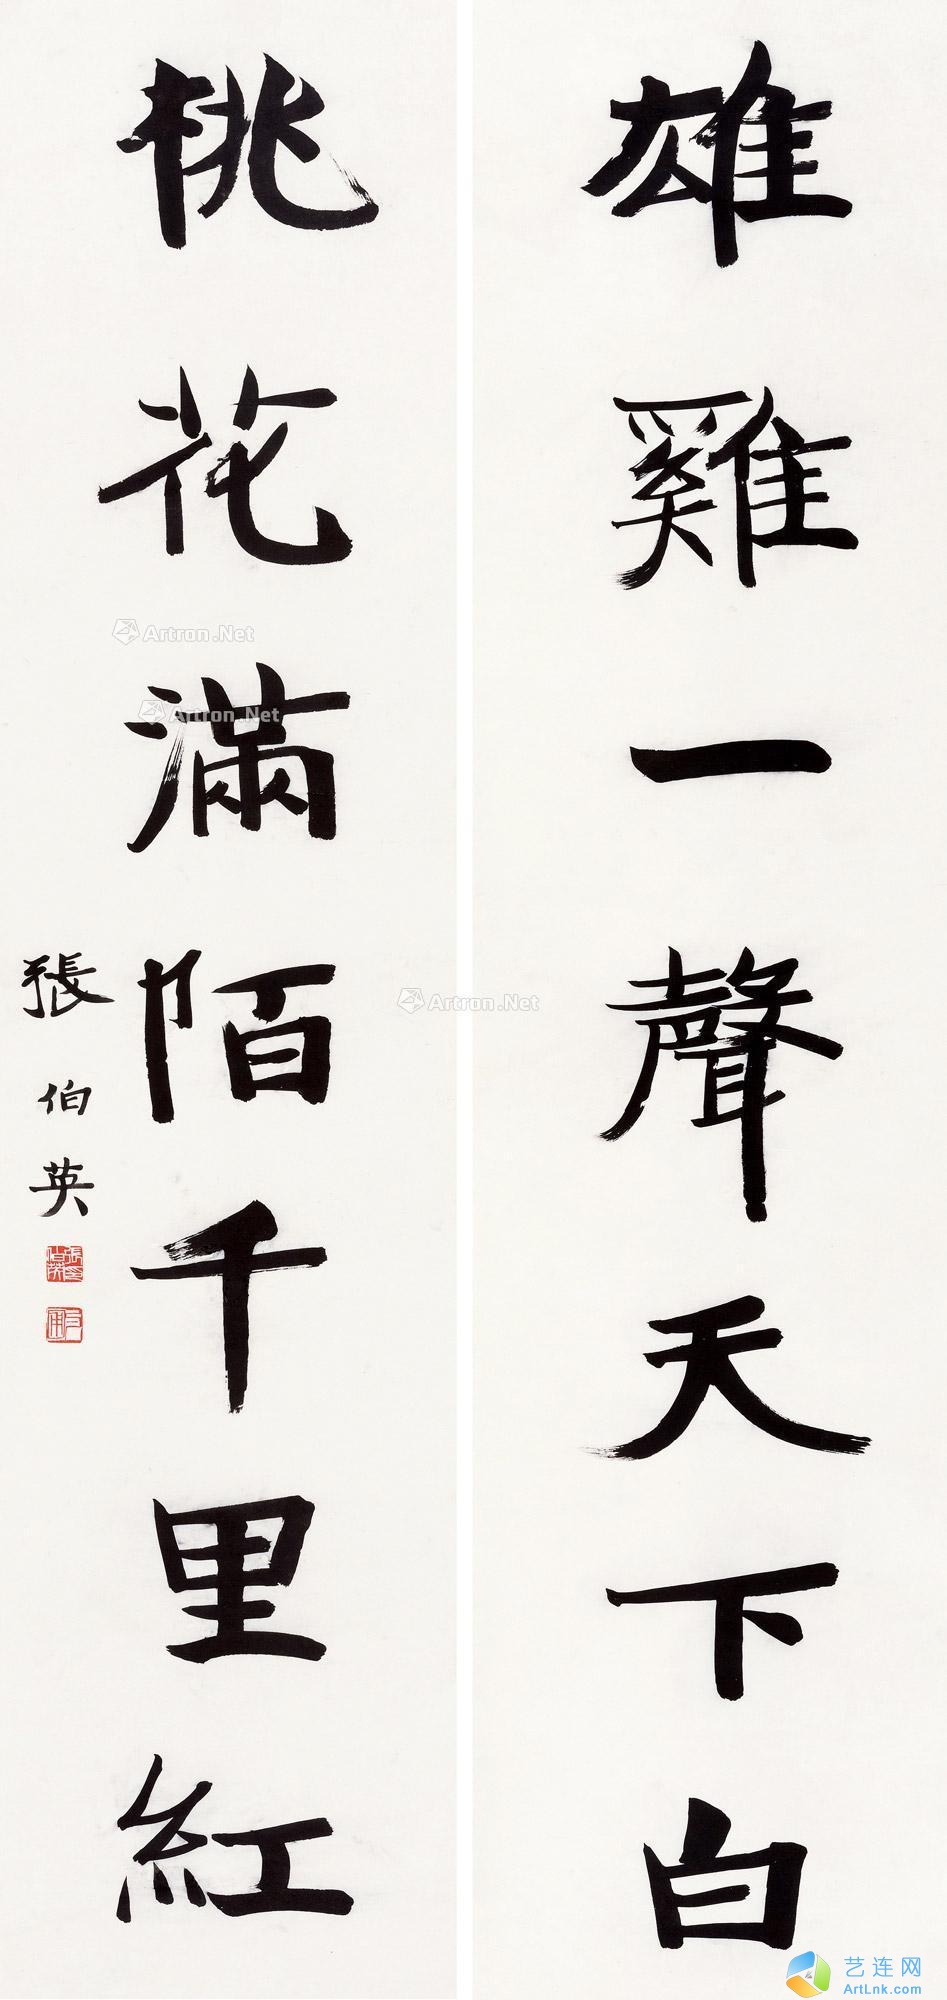 雄雞一聲天下白
桃花滿陌千里紅
張伯英
Artron.Net
Artron.Net
Artron.Net
艺连网
ArtLnk.com